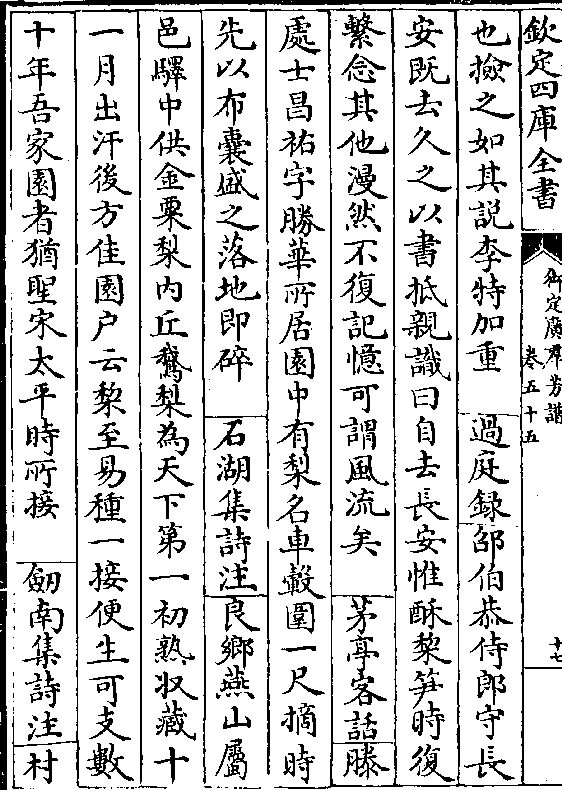 欽定四庫全書
御定廣群芳譜
卷五十五
十七
也撿之如其説李特加重 過庭録邵伯恭侍郎守長
安既去久之以書抵親識曰自去長安惟酥棃笋時復
繫念其他漫然不復記憶可謂風流矣 茅亭客話滕
處士昌祐字勝華所居園中有梨名車轂圍一尺摘時
先以布囊盛之落地即碎 石湖集詩注良鄉燕山屬
邑驛中供金粟梨内丘鵞梨為天下第一初熟收藏十
一月出汗後方佳園户云棃至易種一接便生可支數
十年吾家園者猶聖宋太平時所接 劒南集詩注村